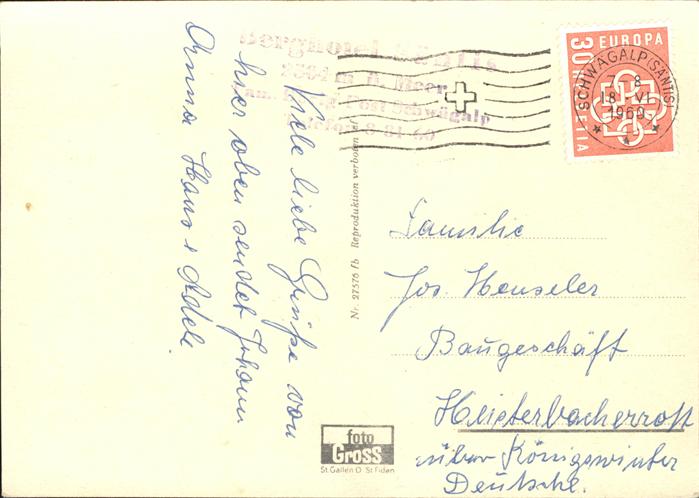 Viele liebe Grüße von
hier oben sendet Johann
Anna Hans + Adele.
Berghotel Säntis
2504 m ü. Meer
Post Schwägalp
Telefon
EUROPA
30 HELVETIA
SCHWÄGALP (SÄNTIS)
7-8
18.VI.
1960
Nr. 27576 fb Reproduktion verboten
Familie
Jos. Henseler
Baugeschäft
Heisterbacherrott
über Königswinter
Deutschl.
foto
Gross
St.Gallen O St Fiden